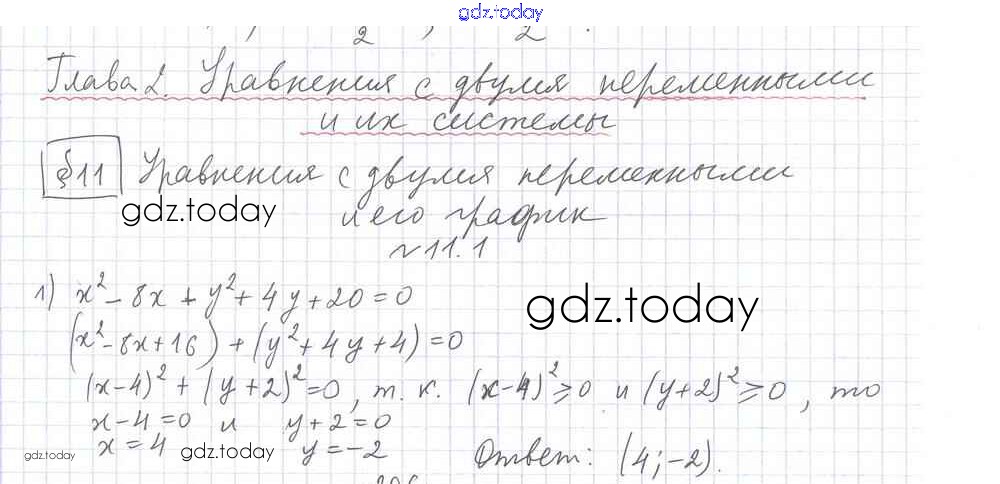 gdz.today
Глава 2. Уравнения с двумя переменными
и их системы
§11 Уравнения с двумя переменными
и его график
gdz.today
№11.1
1) x² - 8x + y² + 4y + 20 = 0
gdz.today
(x² - 8x + 16) + (y² + 4y + 4) = 0
(x-4)² + (y+2)² = 0, т.к. (x-4)² ≥ 0 и (y+2)² ≥ 0, то
x-4 = 0 и y+2 = 0
x = 4 gdz.today y = -2 Ответ: (4; -2).
gdz.today